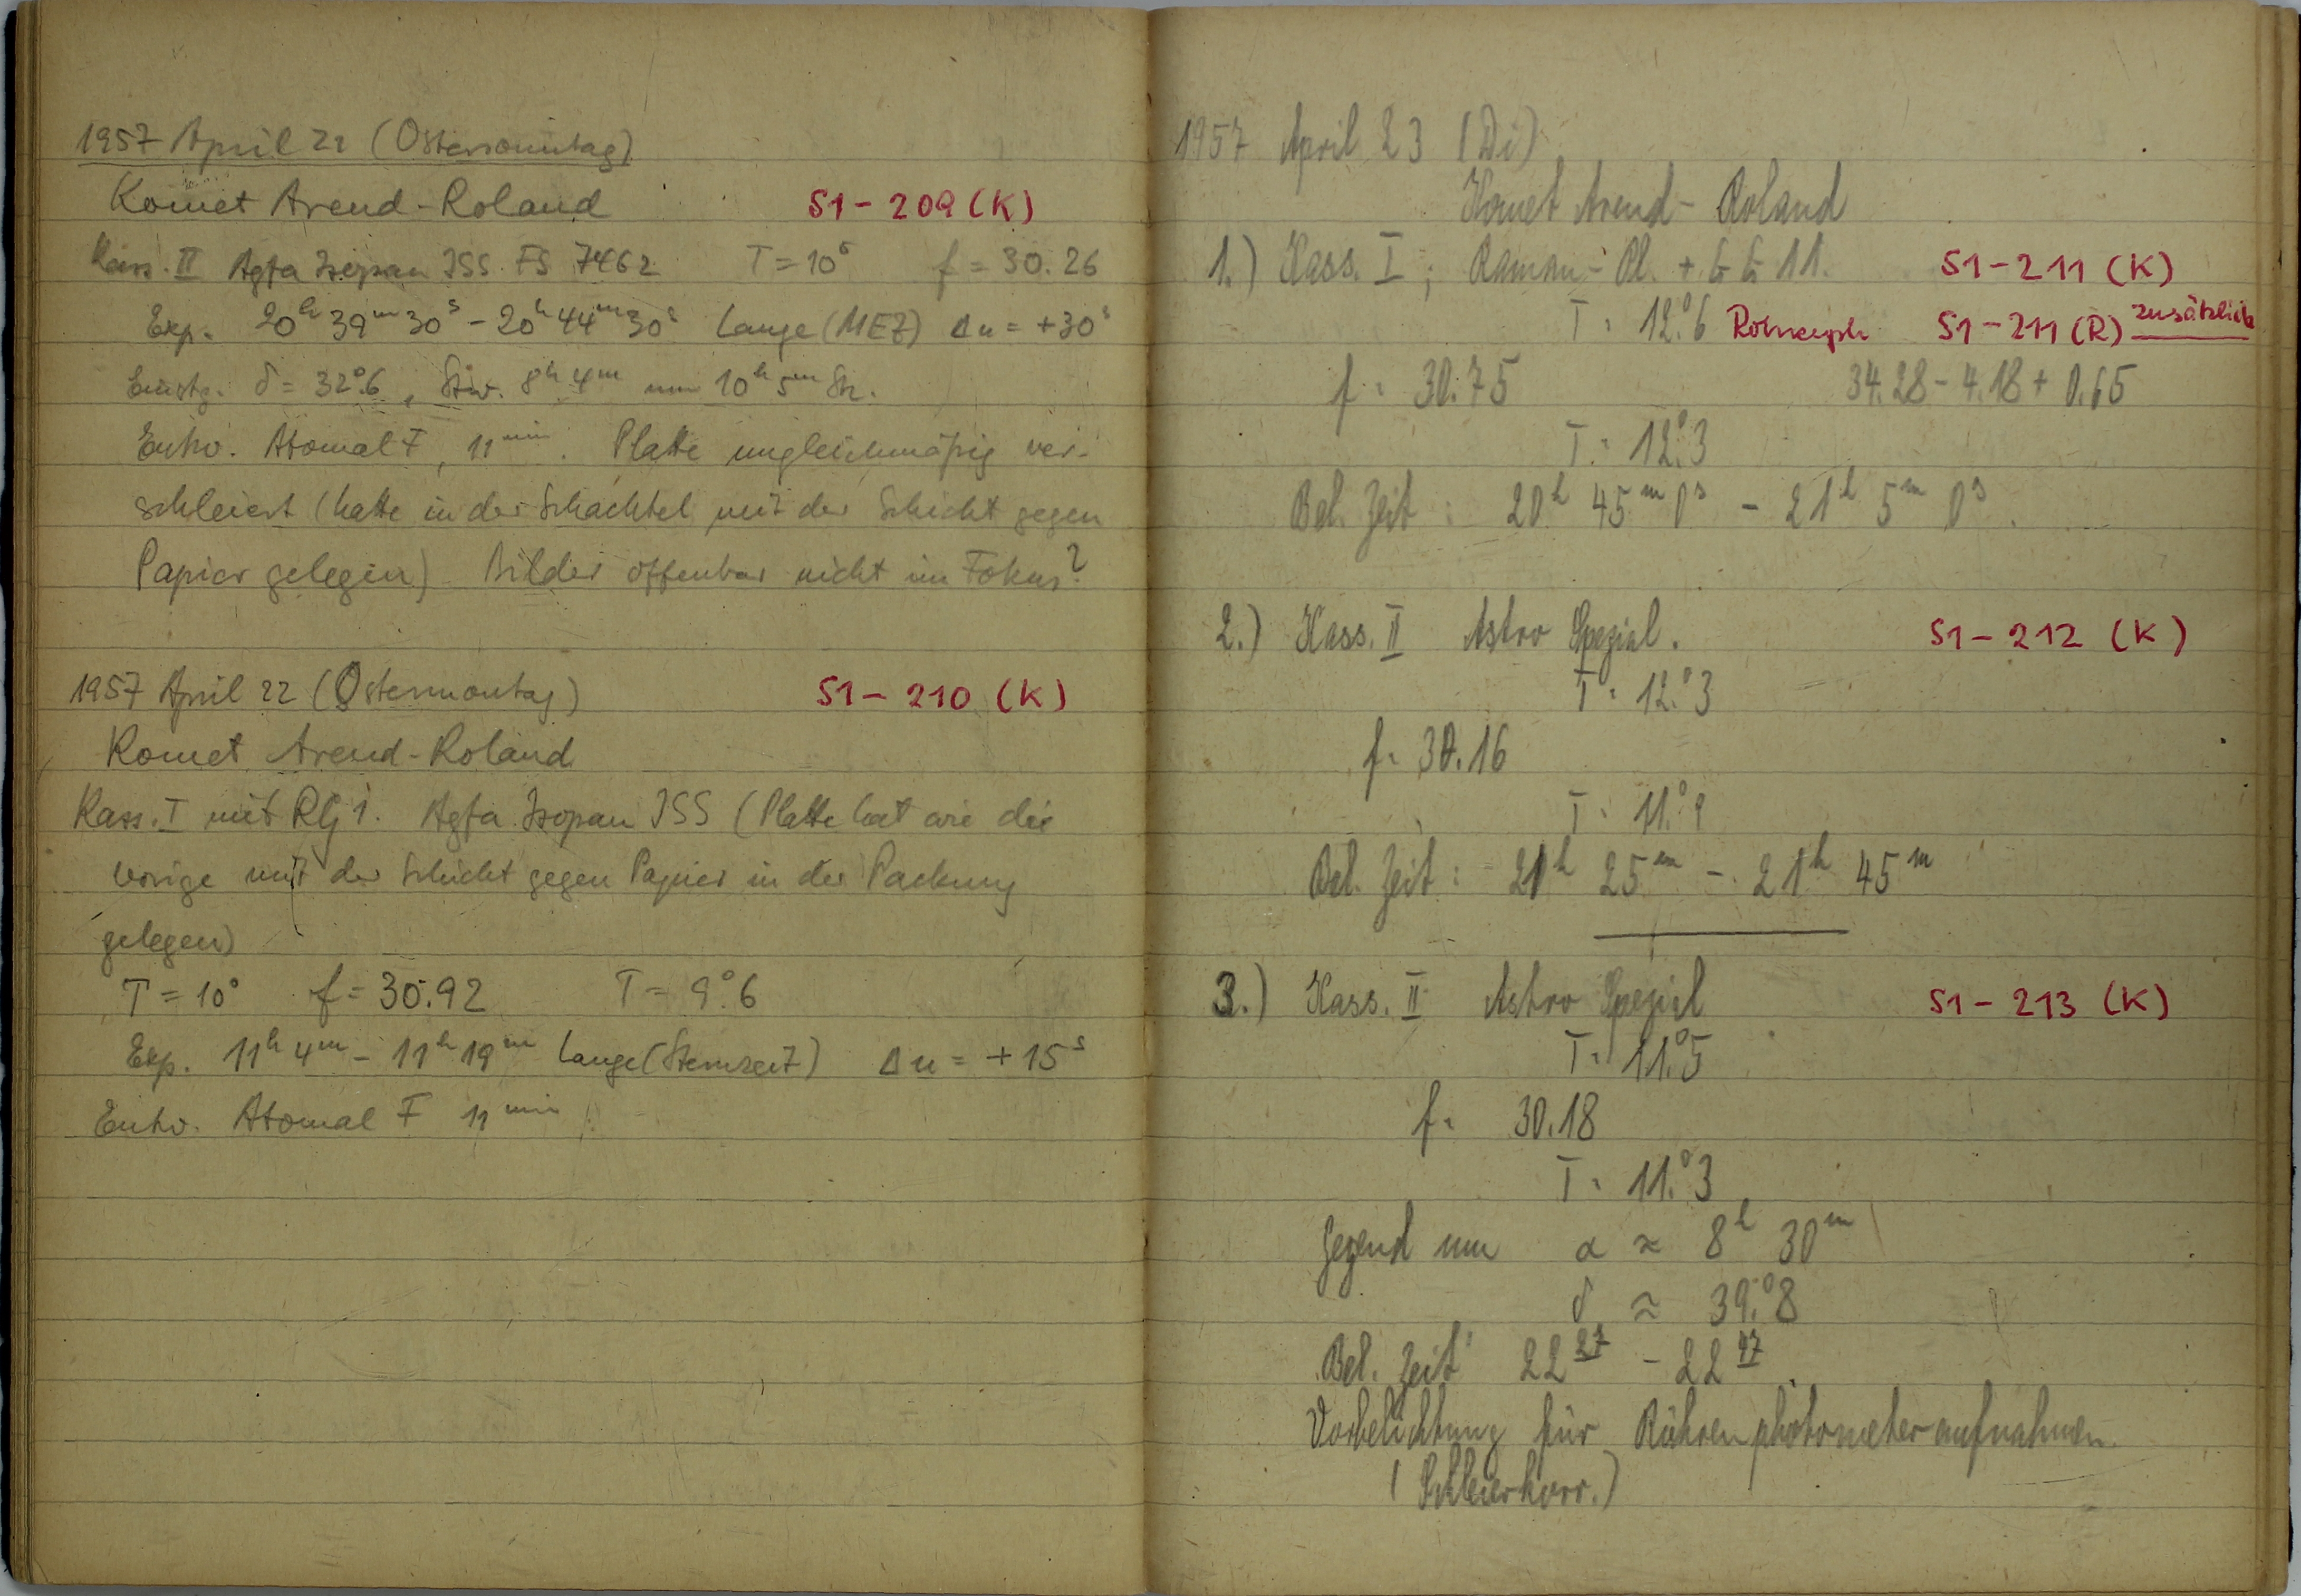 1957 April 21 (Ostersonntag)
Komet Arend-Roland S1-209 (K)
Kass. II Agfa Isopan ISS FS 7462 T = 10° f = 30.26
Exp. 20h 39m 30s - 20h 44m 30s Lange (MEZ) Δu = +30s
Einstg. δ = 32°.6, Stw. 8h 4m um 10h 5m Stz.
Entw. Atomal F, 11min. Platte ungleichmäßig ver-
schleiert (hatte in der Schachtel mit der Schicht gegen
Papier gelegen) Bilder offenbar nicht im Fokus?
1957 April 22 (Ostermontag) S1-210 (K)
Komet Arend-Roland
Kass. I mit RG 1. Agfa Isopan ISS (Platte hat wie die
vorige mit der Schicht gegen Papier in der Packung
gelegen)
T = 10° f = 30.92 T = 9°.6
Exp. 11h 4m - 11h 19m Lange (Sternzeit) Δu = +15s
Entw. Atomal F 11min
1957 April 23 (Di)
Komet Arend-Roland
1.) Kass. I; Raman-Pl. + GG 11. S1-211 (K)
T = 12.°6 S1-211 (R) zusätzlich
f = 30.75 34.28 - 4.18 + 0.65
T = 12.°3
Bel. Zeit: 20h 45m 0s - 21h 5m 0s.
2.) Kass. II Astro Spezial. S1-212 (K)
T = 12.°3
f = 30.16
T = 11.°9
Bel. Zeit: 21h 25m - 21h 45m
3.) Kass. II Astro Spezial S1-213 (K)
T = 11.°5
f = 30.18
T = 11.°3
Gegend um α ≈ 8h 30m
δ ≈ 39.°8
Bel. Zeit 22 27 - 22 47
Vorbelichtung für Röhrenphotometeraufnahmen
(Schleierkorr.)